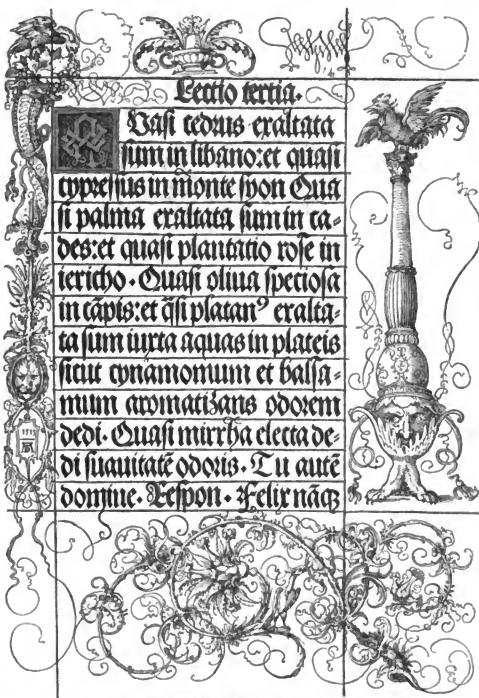 Lectio tertia.
QUasi cedrus exaltata
sum in libano: et quasi
cypressus in mõnte syon Qua
si palma exaltata sum in ca-
des: et quasi plantatio rose in
iericho. Quasi oliua speciosa
in cãpis: et q̃si platanꝰ exalta-
ta sum iuxta aquas in plateis
sicut cynamomum et balsa-
mum aromatizans odorem
dedi. Quasi mirrha electa de-
di suauitatẽ odoris. Tu autẽ
domine. Respon. Felix nãqꝫ
1515
AD